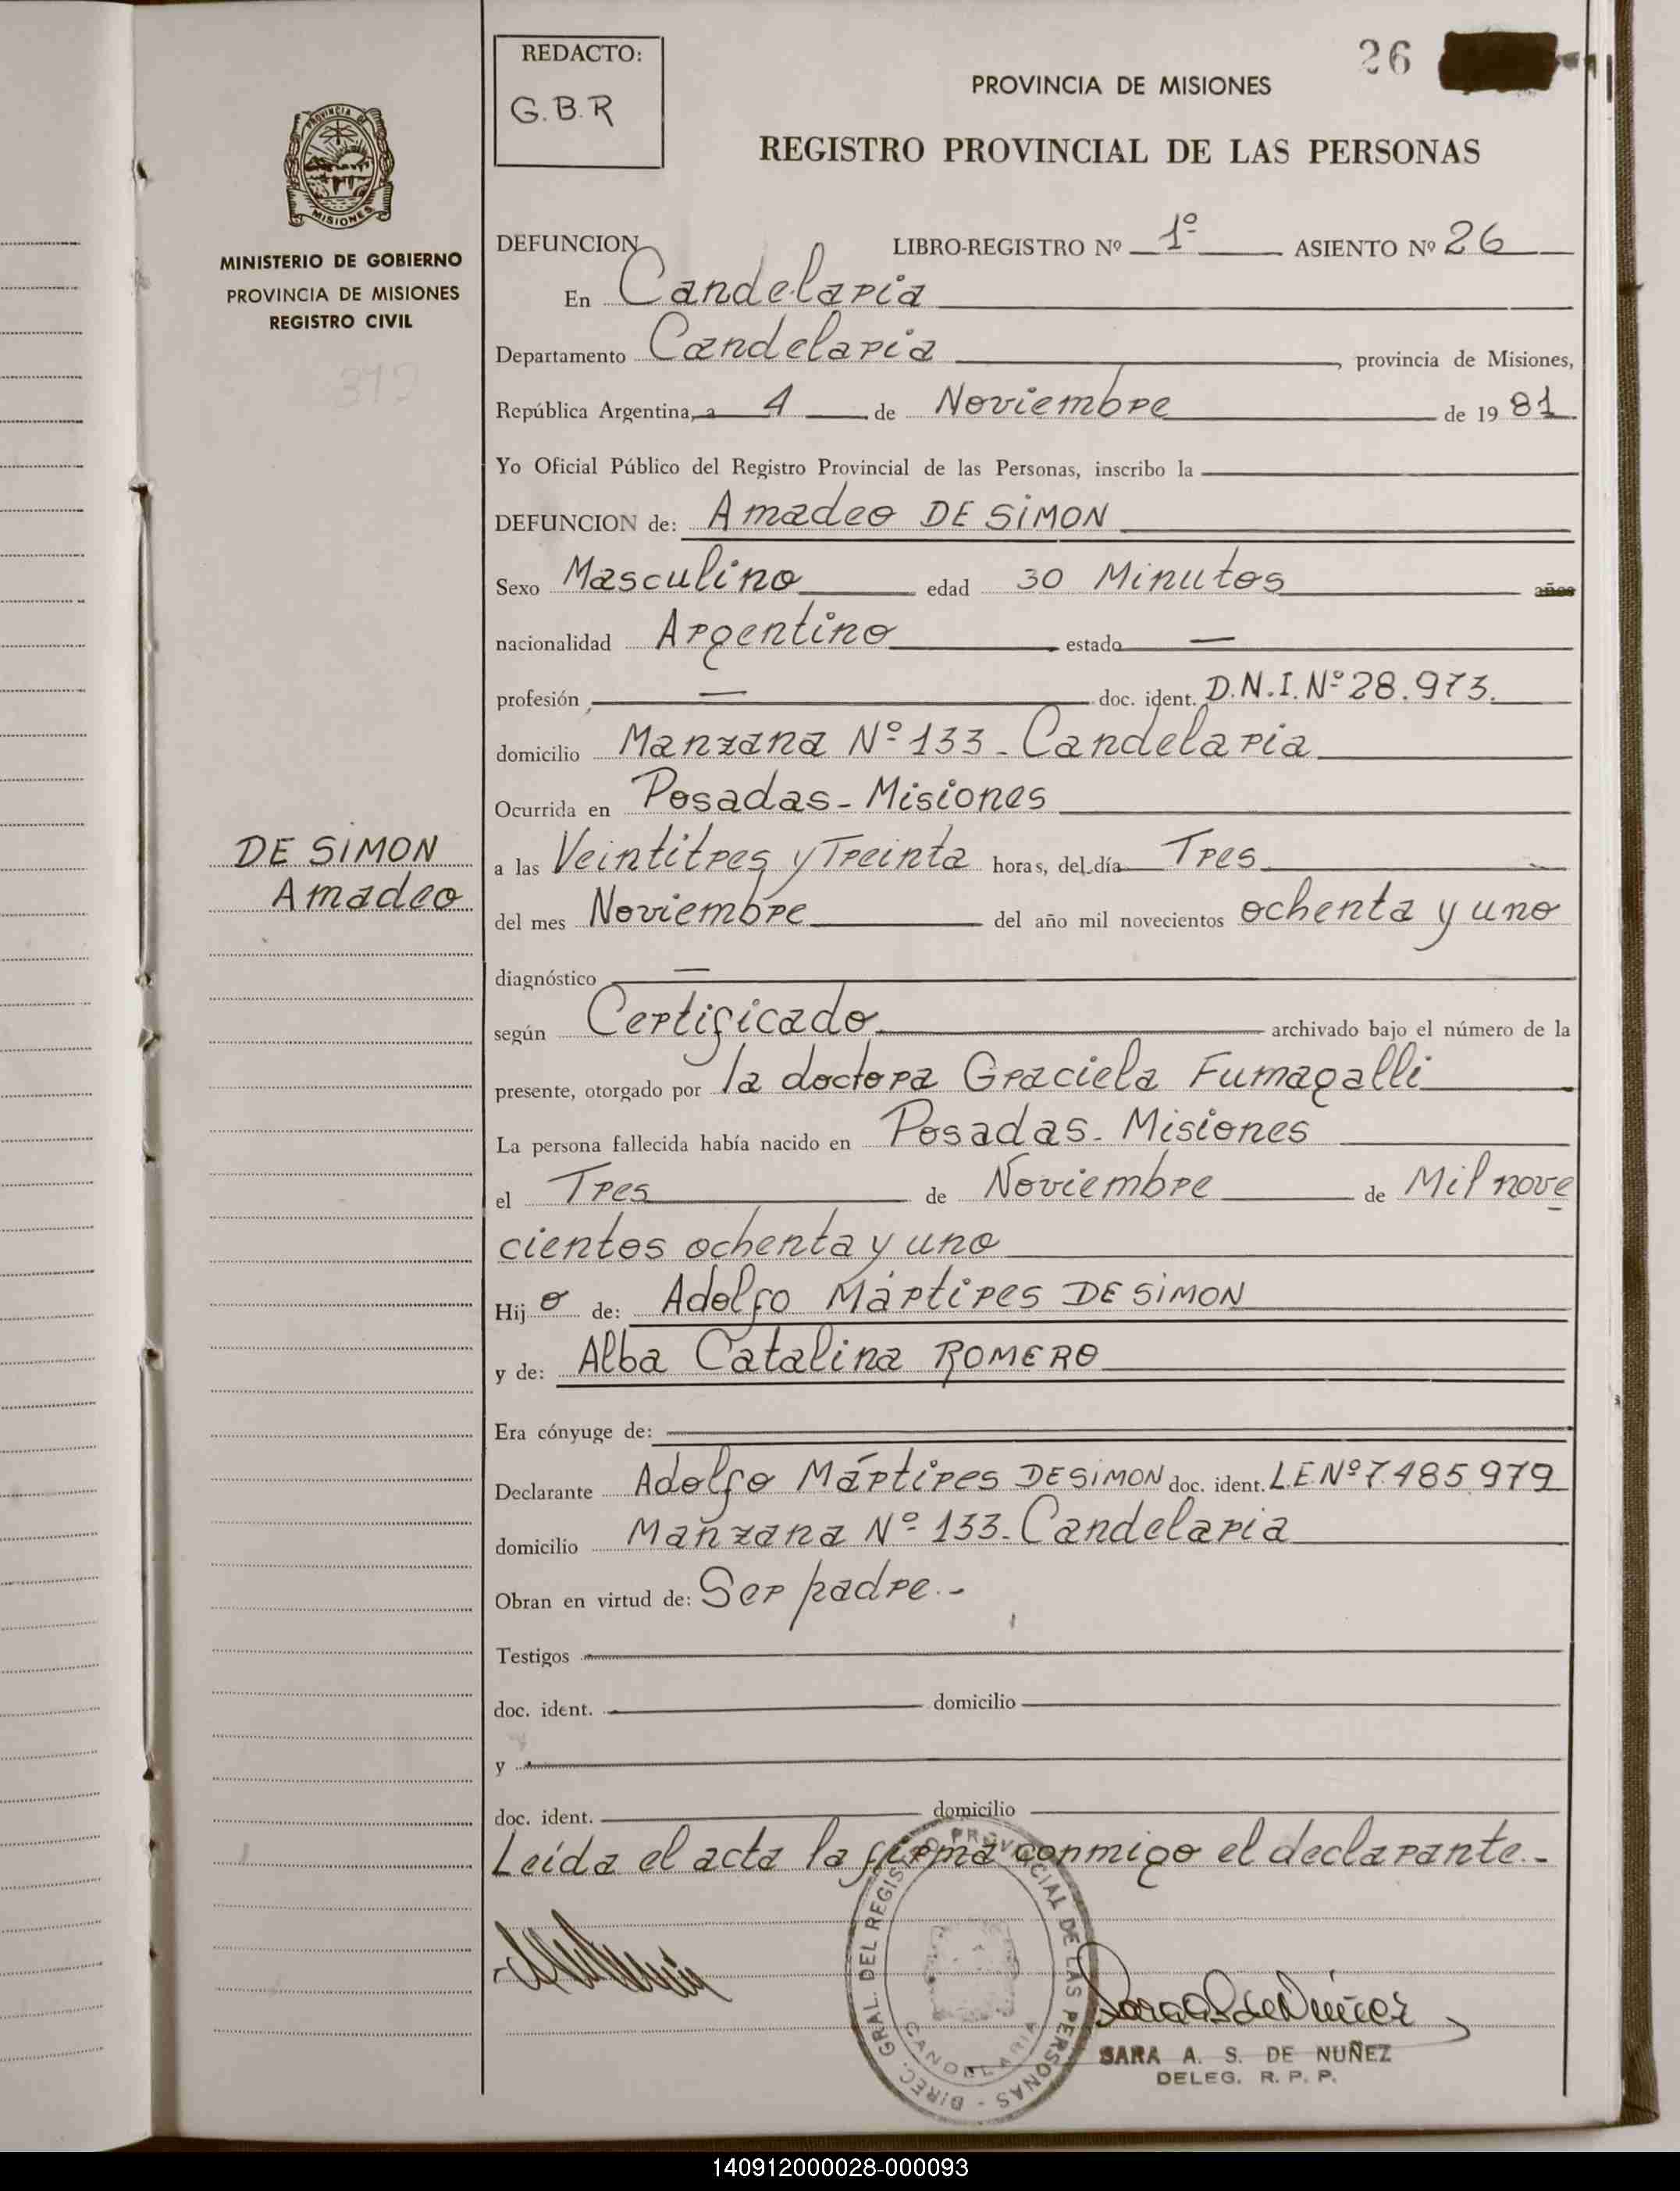 REDACTO:
G.B.R
26
PROVINCIA DE MISIONES
REGISTRO PROVINCIAL DE LAS PERSONAS
PROVINCIA DE
MISIONES
MINISTERIO DE GOBIERNO
PROVINCIA DE MISIONES
REGISTRO CIVIL
DEFUNCION LIBRO-REGISTRO Nº 1º ASIENTO Nº 26
En Candelaria
Departamento Candelaria, provincia de Misiones,
República Argentina, a 4 de Noviembre de 19 81
Yo Oficial Público del Registro Provincial de las Personas, inscribo la
DEFUNCION de: Amadeo DE SIMON
Sexo Masculino edad 30 Minutos años
nacionalidad Argentino estado —
profesión — doc. ident. D.N.I. Nº 28.973.
domicilio Manzana Nº 133 - Candelaria
Ocurrida en Posadas - Misiones
DE SIMON
Amadeo
a las Veintitres y Treinta horas, del día Tres
del mes Noviembre del año mil novecientos ochenta y uno
diagnóstico —
según Certificado archivado bajo el número de la
presente, otorgado por la doctora Graciela Fumagalli
La persona fallecida había nacido en Posadas - Misiones
el Tres de Noviembre de Mil nove
cientos ochenta y uno
Hij o de: Adolfo Mártires DE SIMON
y de: Alba Catalina ROMERO
Era cónyuge de:
Declarante Adolfo Mártires DE SIMON doc. ident. L.E. Nº 7.485.979
domicilio Manzana Nº 133 - Candelaria
Obran en virtud de: Ser padre.-
Testigos
doc. ident. domicilio
y
doc. ident. domicilio
Leída el acta la firma conmigo el declarante.-
DIREC. GRAL. DEL REGISTRO PROVINCIAL DE LAS PERSONAS -
CANDELARIA
SARA A. S. DE NUÑEZ
DELEG. R. P. P.
140912000028-000093